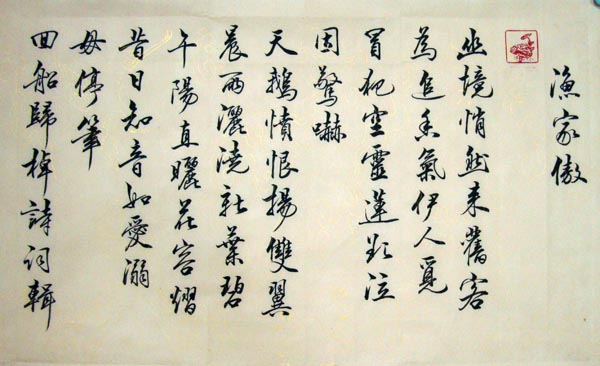 漁家傲
幽境悄然来舊客
為追香氣伊人覓
冒犯空靈蓮影泣
因驚嚇
天鵝憤恨揚雙翼
晨雨灑澆新葉碧
午陽直曬花容熠
昔日知音如愛溺
毋停筆
回船歸棹詩詞輯